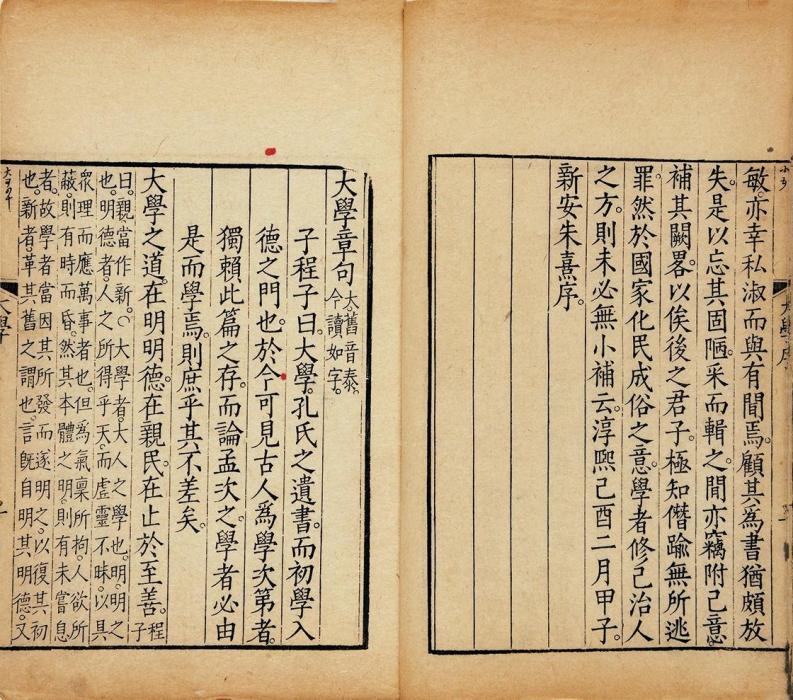 敏。亦幸私淑而與有聞焉。顧其為書猶頗放
失。是以忘其固陋。采而輯之。閒亦竊附己意。
補其闕畧。以俟後之君子。極知僭踰無所逃
罪。然於國家化民成俗之意。學者修己治人
之方。則未必無小補云。淳熙己酉二月甲子。
新安朱熹序。
大學章句 大舊音泰。
今讀如字。
子程子曰。大學。孔氏之遺書。而初學入
德之門也。於今可見古人爲學次第者。
獨賴此篇之存。而論孟次之。學者必由
是而學焉。則庶乎其不差矣。
大學之道。在明明德。在親民。在止於至善。程子
曰。親當作新。○大學者。大人之學也。明。明之
也。明德者。人之所得乎天。而虛靈不昧。以具
衆理而應萬事者也。但為氣稟所拘。人欲所
蔽。則有時而昏。然其本體之明。則有未嘗息
者。故學者當因其所發而遂明之。以復其初
也。新者。革其舊之謂也。言旣自明其明德。又
大學